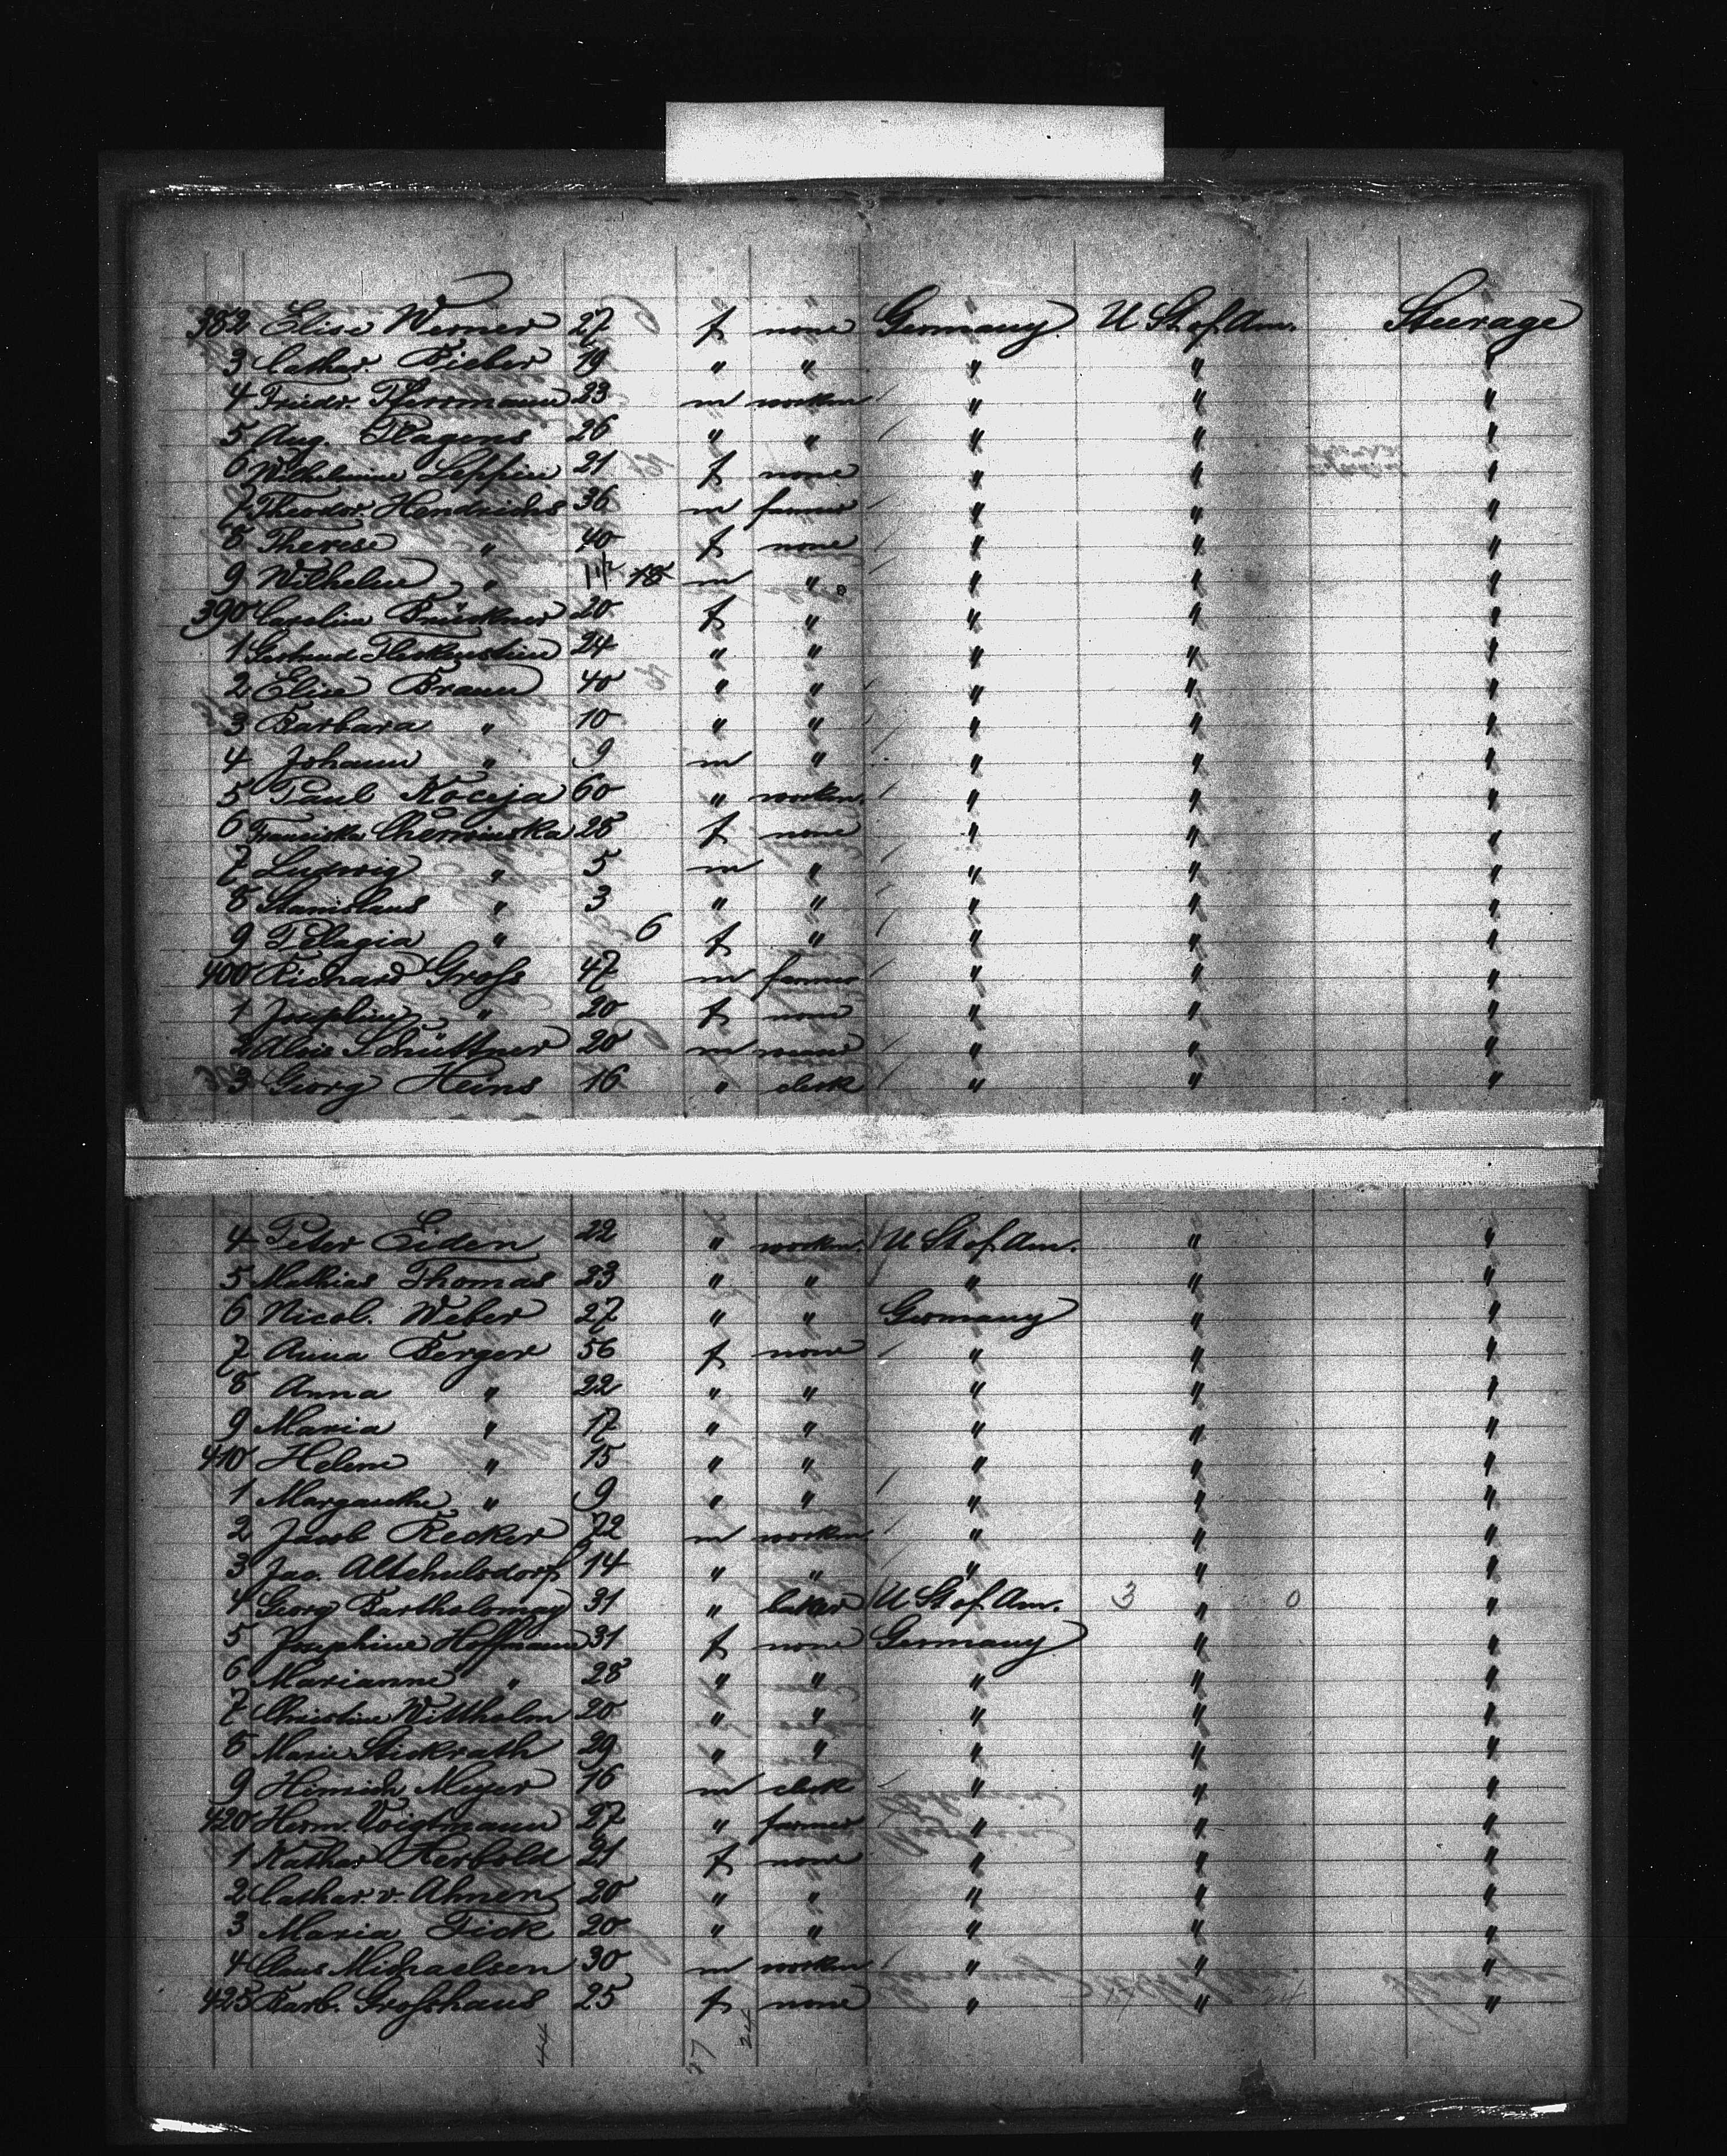 382 Elise Werner 27 f none Germany U St of Am. Steerage
3 Cathar. Bieber 19 " " " " "
4 Friedr. Thormann 23 m workm. " " "
5 Aug. Hagens 26 " " " " "
6 Wilhelmine Leppin 21 f none " " "
7 Theodor Hendrichs 36 m farmer " " "
8 Therese " 40 f none " " "
9 Wilhelm " 11½ 18 m " " " "
390 Caroline Brückner 20 f " " " "
1 Gertrud Fleckenstein 24 " " " " "
2 Elise Braun 40 " " " " "
3 Barbara " 10 " " " " "
4 Johann " 9 m " " " "
5 Paul Koceja 60 " workm. " " "
6 Franciska Cherwinska 28 f none " " "
7 Ludwig " 5 m " " " "
8 Stanislaus " 3 " " " " "
9 Pelagia " 6 f " " " "
400 Richard Gross 47 m farmer " " "
1 Josephine " 20 f none " " "
2 Alois Schüttner 20 m " " "
3 Georg Heins 16 " clerk " " "
4 Peter Eiden 22 " workm. U St of Am. " "
5 Mathias Thomas 23 " " " " "
6 Nicol. Weber 27 " " Germany " "
7 Anna Berger 56 f none " " "
8 Anna " 22 " " " " "
9 Maria " 17 " " " " "
410 Helene " 15 " " " " "
1 Margarethe " 9 " " " " "
2 Jacob Becker 72 m workm. " " "
3 Jac. Altehulsdorf 14 " " " " "
4 Georg Bartholomay 31 " baker U St of Am. 3 " 0 "
5 Josephine Hoffmann 31 f none Germany " "
6 Marianne " 28 " " " " "
7 Christine Wittholm 20 " " " " "
8 Marie Stickrath 29 " " " " "
9 Heinrich Meyer 16 m clerk " " "
420 Herm. Voigtmann 27 " farmer " " "
1 Kathar. Herbold 21 f none " " "
2 Cathar. v. Ahnen 20 " " " " "
3 Maria Fick 20 " " " " "
4 Claus Michaelsen 30 m workm. " " "
425 Barb. Grosshaus 25 f none " " "
44 27 24